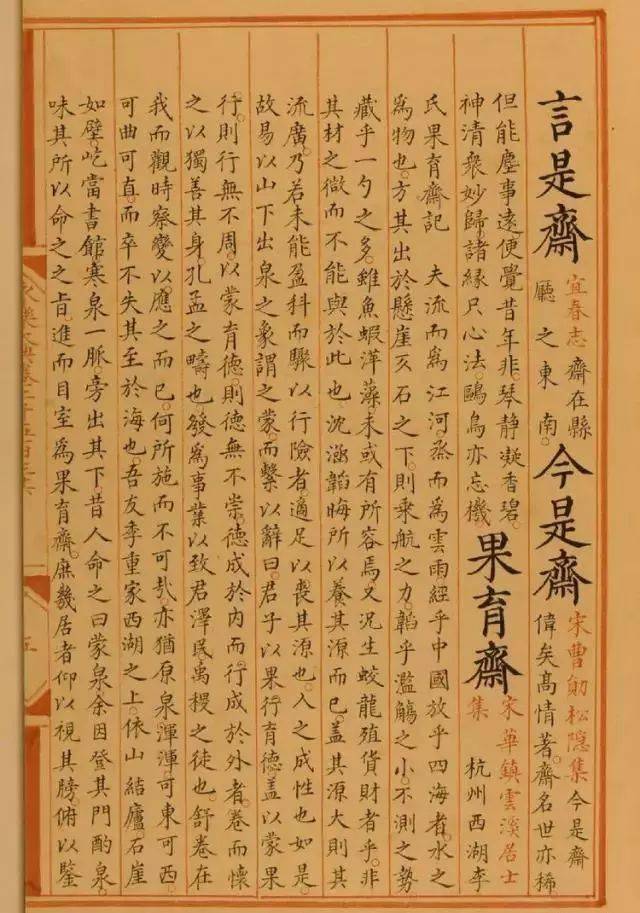 言是齋
宜春志 齋在縣
廳之東南。
今是齋
宋曹勛松隱集 今是齋
偉矣髙情著。齋名世亦稀。
但能塵事遠。便覺昔年非。琴静凝香碧。
神清衆妙歸。諸緣只心法。鷗鳥亦忘機。
果育齋
宋華鎮雲溪居士
集 杭州西湖李
氏果育齋記 夫流而為江河。烝而為雲雨。經乎中國。放乎四海者。水之
為物也。方其出於懸崖仄石之下。則乘航之力。韜乎濫觴之小。不測之勢
藏乎一勺之多。雖魚蝦萍藻。未或有所容焉。又況生蛟龍殖貨財者乎。非
其材之微而不能與於此也。沈涵韜晦所以養其源而已。蓋其源大則其
流廣。乃若未能盈科而驟以行險者。適足以喪其源也。人之成性也如是。
故易以山下出泉之象。謂之蒙。而繫以辭曰。君子以果行育德。蓋以蒙果
行。則行無不周。以蒙育德。則德無不崇。德成於内而行成於外者。卷而懷
之以獨善其身。孔孟之疇也。發為事業以致君澤民。禹稷之徒也。舒卷在
我而觀時察變以應之而已。何所施而不可哉。亦猶原泉渾渾。可東可西。
可曲可直。而卒不失其至於海也。吾友季重。家西湖之上。依山結廬。石崖
如壁。屹當書館。寒泉一脈。旁出其下。昔人命之曰蒙泉。余因登其門。酌泉
味其所以命之之旨。進而目室為果育齋。庶幾居者仰以視其牓。俯以鑒
五